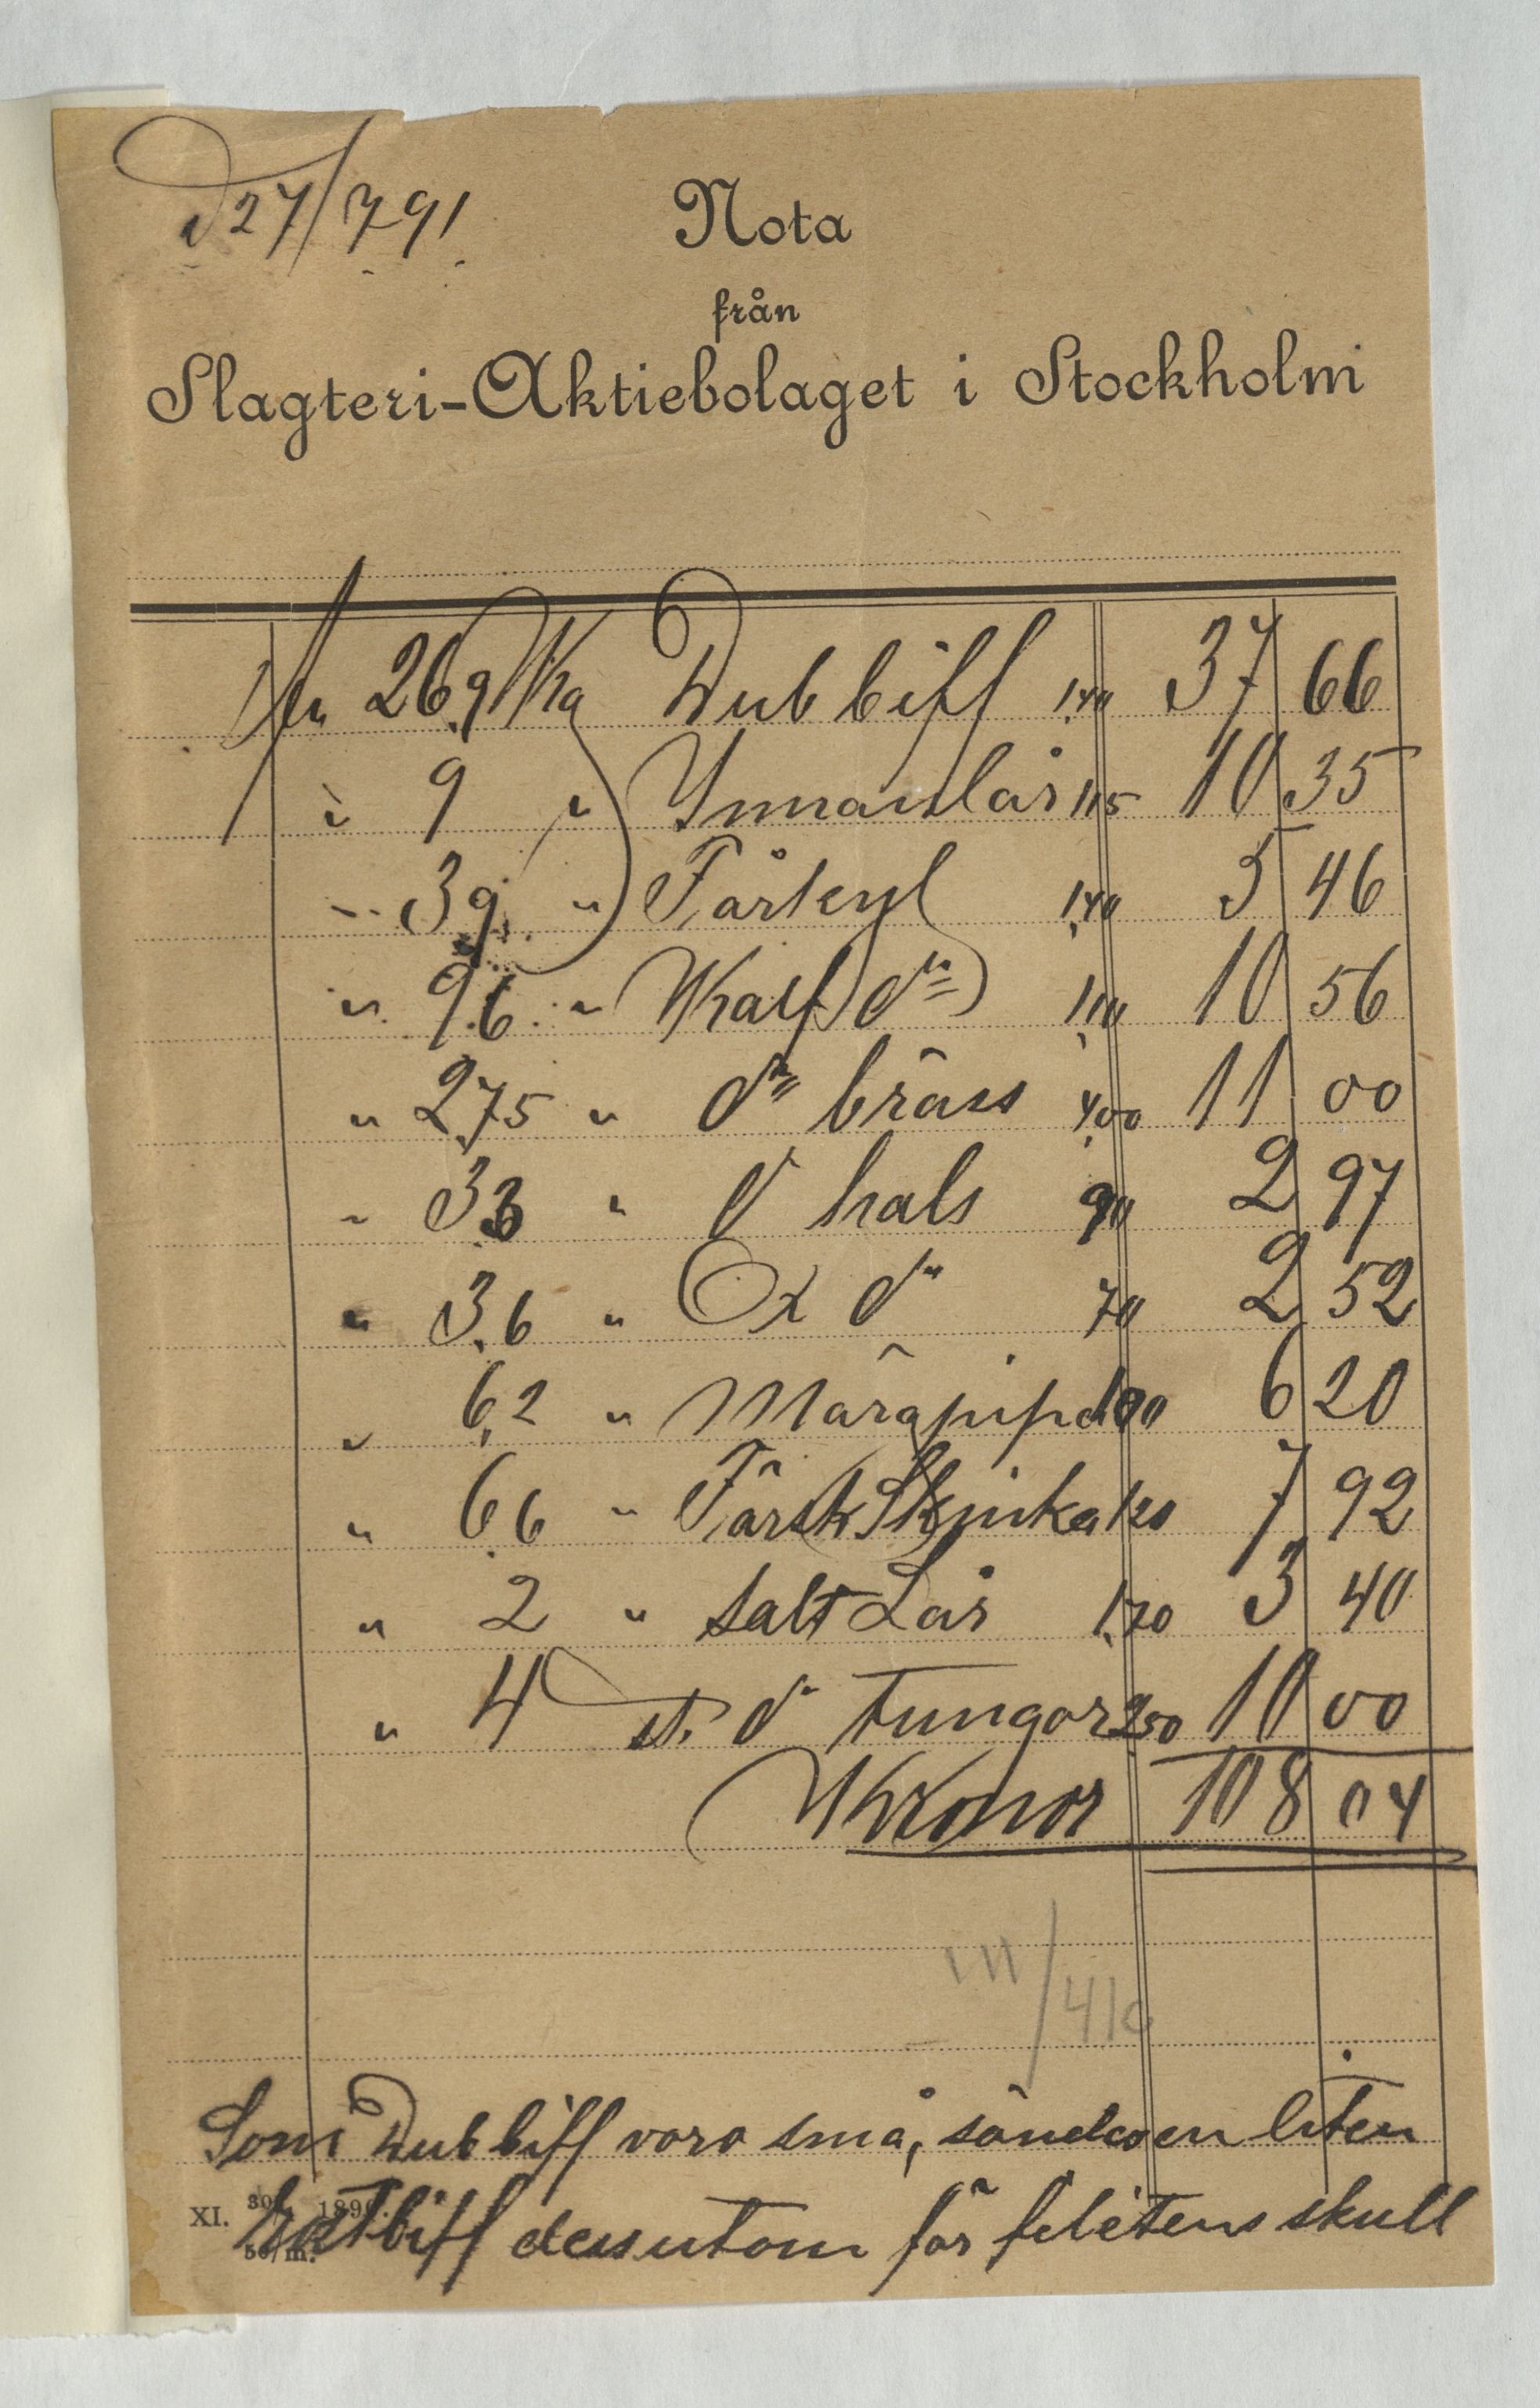 d 27/7 91.
Nota
från
Slagteri-Aktiebolaget i Stockholm
26,9 Kg Dubbiff 1,40 37 66
" 9 " Innanlår 1,15 10 35
" 3,9 " Fårkyl 1,40 5 46
" 9,6 " Kalf do 1,10 10 56
" 2,75 " do bräss 4,00 11 00
" 3,3 " do hals 90 2 97
" 3,6 " Ox do 70 2 52
" 6,2 " Märgpipa 1,00 6 20
" 6,6 " Färsk Skinka 1,20 7 92
" 2 " Salt Lår 1,70 3 40
" 4 st. do Tungor 2,50 10 00
Kronor 108 04
III/410
Som Dubbiff voro små, sändes en liten
XI. 1890.
Ratbiff dessutom för filétens skull
50/m.